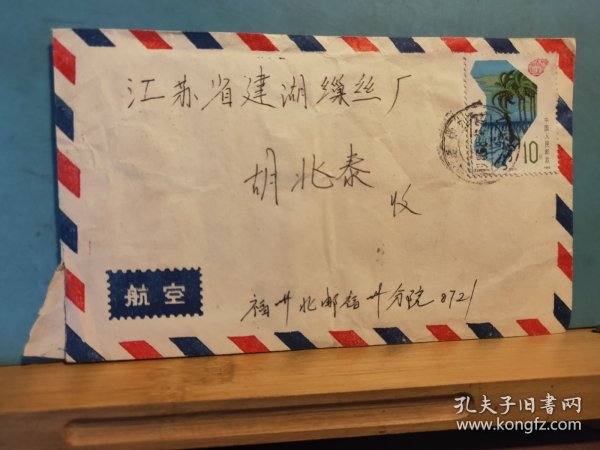 江苏省建湖缫丝厂
中国人民邮政
10分
胡兆泰
收
航空
福州北邮福州分院 8721
孔夫子旧书网
www.kongfz.com